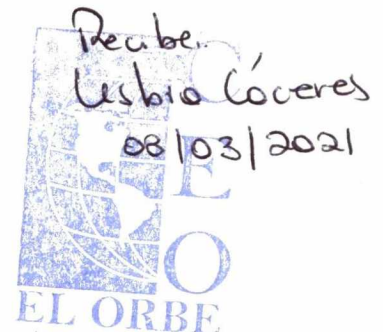 Recibe.
Lesbia Cáceres
08/03/2021
C
E
O
EL ORBE